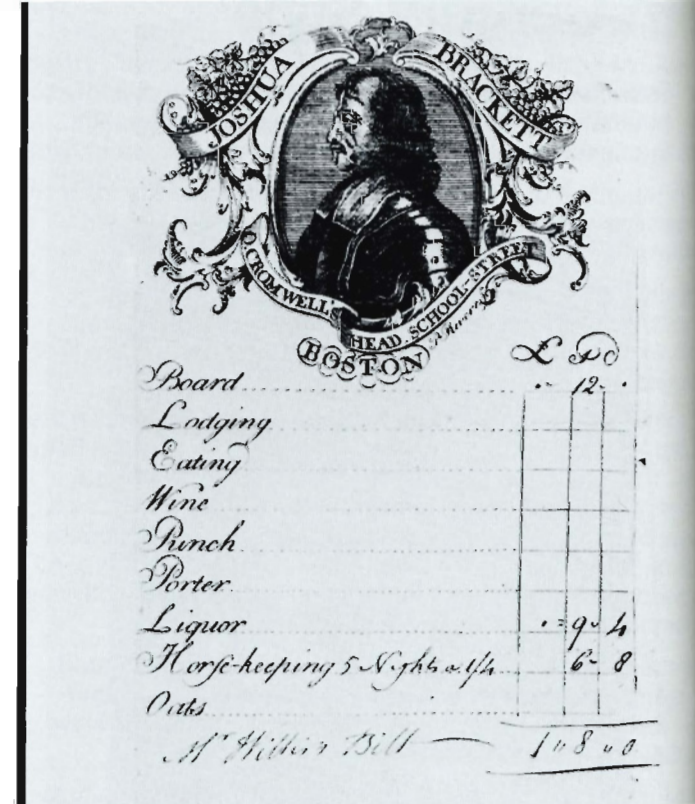 JOSHUA BRACKETT
O. CROMWELL'S HEAD. SCHOOL-STREET
BOSTON
£ S D
Board 12
Lodging
Eating
Wine
Punch
Porter
Liquor 9 4
Horse-keeping 5 Nights a 1/4 6 8
Oats
Mr Bill 1 8 0